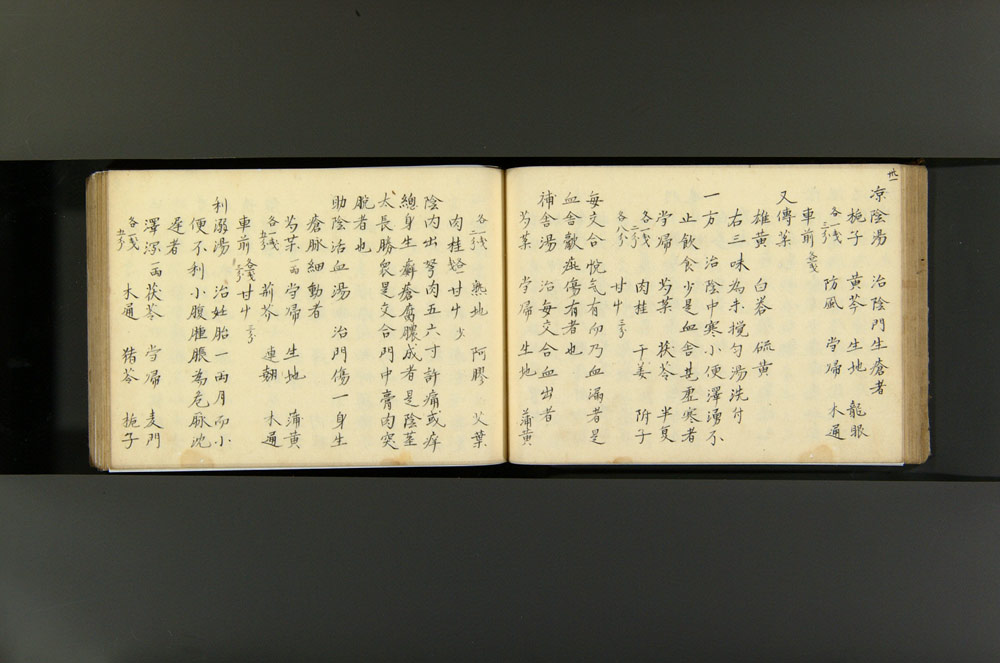 卅一
凉陰湯　治陰門生瘡者
梔子　黄芩　生地　龍眼
各一戋二分　防風　當帰　木通
車前　各戋
又傳薬
雄黄　白礬　硫黄
右三味為末撹匀湯洗付
一方　治陰中寒小便澤湧不
止飲食少是血舎甚虚寒者
當帰　芍薬　茯苓　半夏
各一戋二分　肉桂　干姜　附子
各八分　甘艸　三分
毎交合悅气有仰乃血漏者是
血舎歡疝傷有者也
補舎湯　治毎交合血出者
芍薬　當帰　生地　蒲黄
各一戋二分　熟地　阿膠　艾葉
肉桂　甘艸　少
陰内出孥肉五六寸許痛或痒
總身生癬瘡腐膿成者是陰莖
太長勝衆是交合門中膏肉突
脱者也
助陰治血湯　治門傷一身生
瘡脉細動者
芍薬　一両　當帰　生地　蒲黄
各一戋五分　荊芥　連翹　木通
車前　各戋二分　甘艸　二分
利溺湯　治妊胎一両月而小
便不利小腹腫脹為危脉沈
遅者
澤瀉　一両　茯苓　當帰　麦門
各戋五分　木通　猪苓　梔子